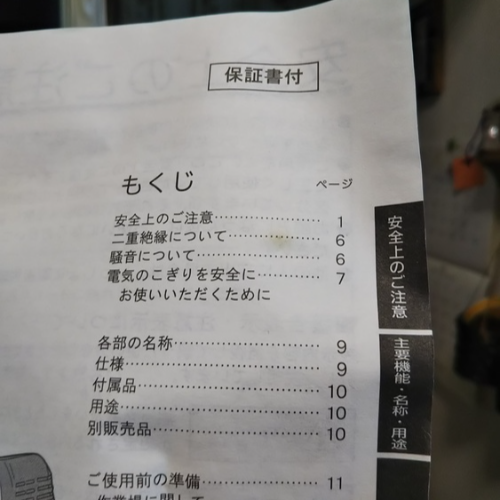 保証書付
もくじ ページ
安全上のご注意…………………… 1
二重絶縁について……………… 6
騒音について…………………… 6
電気のこぎりを安全に………… 7
お使いいただくために
各部の名称……………………… 9
仕様……………………………… 9
付属品…………………………… 10
用途……………………………… 10
別販売品………………………… 10
ご使用前の準備………………… 11
作業場に関して
安全上のご注意
主要機能・名称・用途